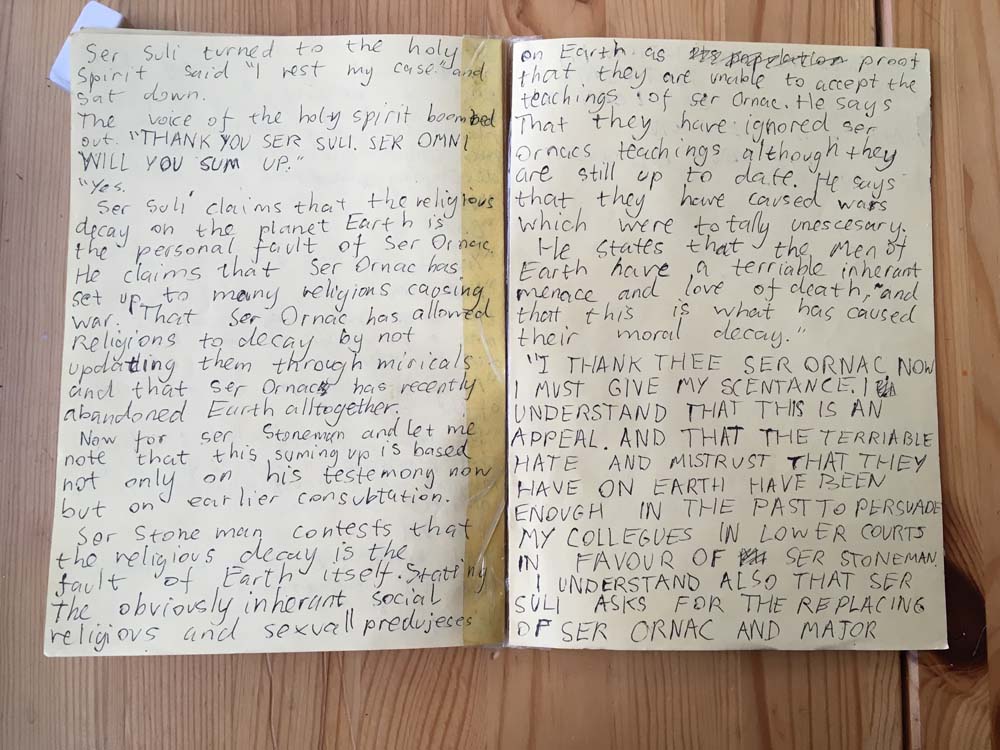 Ser Suli turned to the holy
Spirit said "I rest my case." and
sat down.
The voice of the holy spirit boombed
out. "THANK YOU SER SULI. SER OMNI
WILL YOU SUM UP."
"Yes.
Ser Suli claims that the religious
decay on the planet Earth is
the personal fault of Ser Ornac.
He claims that Ser Ornac has
set up to many religions caosing
war. That Ser Ornac has allowed
Religions to decay by not
updating them through miricals
and that Ser Ornac has recently
abandoned Earth alltogether.
Now for ser Stoneman and let me
note that this suming up is based
not only on his testemony now
but on earlier consubtation.
Ser Stone man contests that
the religious decay is the
fault of Earth itself. Stating
the obviously inherant social
religious and sexuall predujeses
on Earth as proof
that they are unable to accept the
teachings of ser Ornac. He says
That they have ignored ser
Ornacs teachings although they
are still up to date. He says
that they have caused wars
which were totally unescesary.
He states that the Men of
Earth have a terriable inherant
menace and love of death, and
that this is what has caused
their moral decay."
"I THANK THEE SER ORNAC NOW
I MUST GIVE MY SCENTANCE. I
UNDERSTAND THAT THIS IS AN
APPEAL. AND THAT THE TERRIABLE
HATE AND MISTRUST THAT THEY
HAVE ON EARTH HAVE BEEN
ENOUGH IN THE PAST TO PERSUADE
MY COLLEGUES IN LOWER COURTS
IN FAVOUR OF SER STONEMAN.
I UNDERSTAND ALSO THAT SER
SULI ASKS FOR THE REPLACING
OF SER ORNAC AND MAJOR